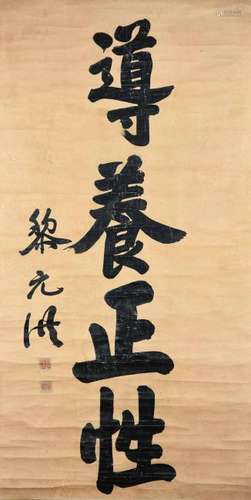 導養正性
黎元洪